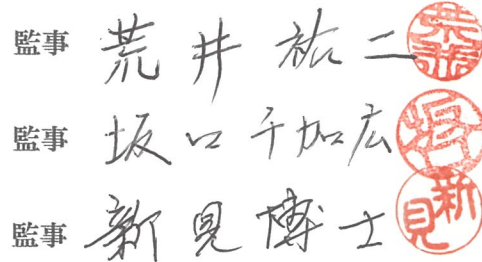 監事 荒井祐二
監事 坂口千加広
監事 新見博士
新見